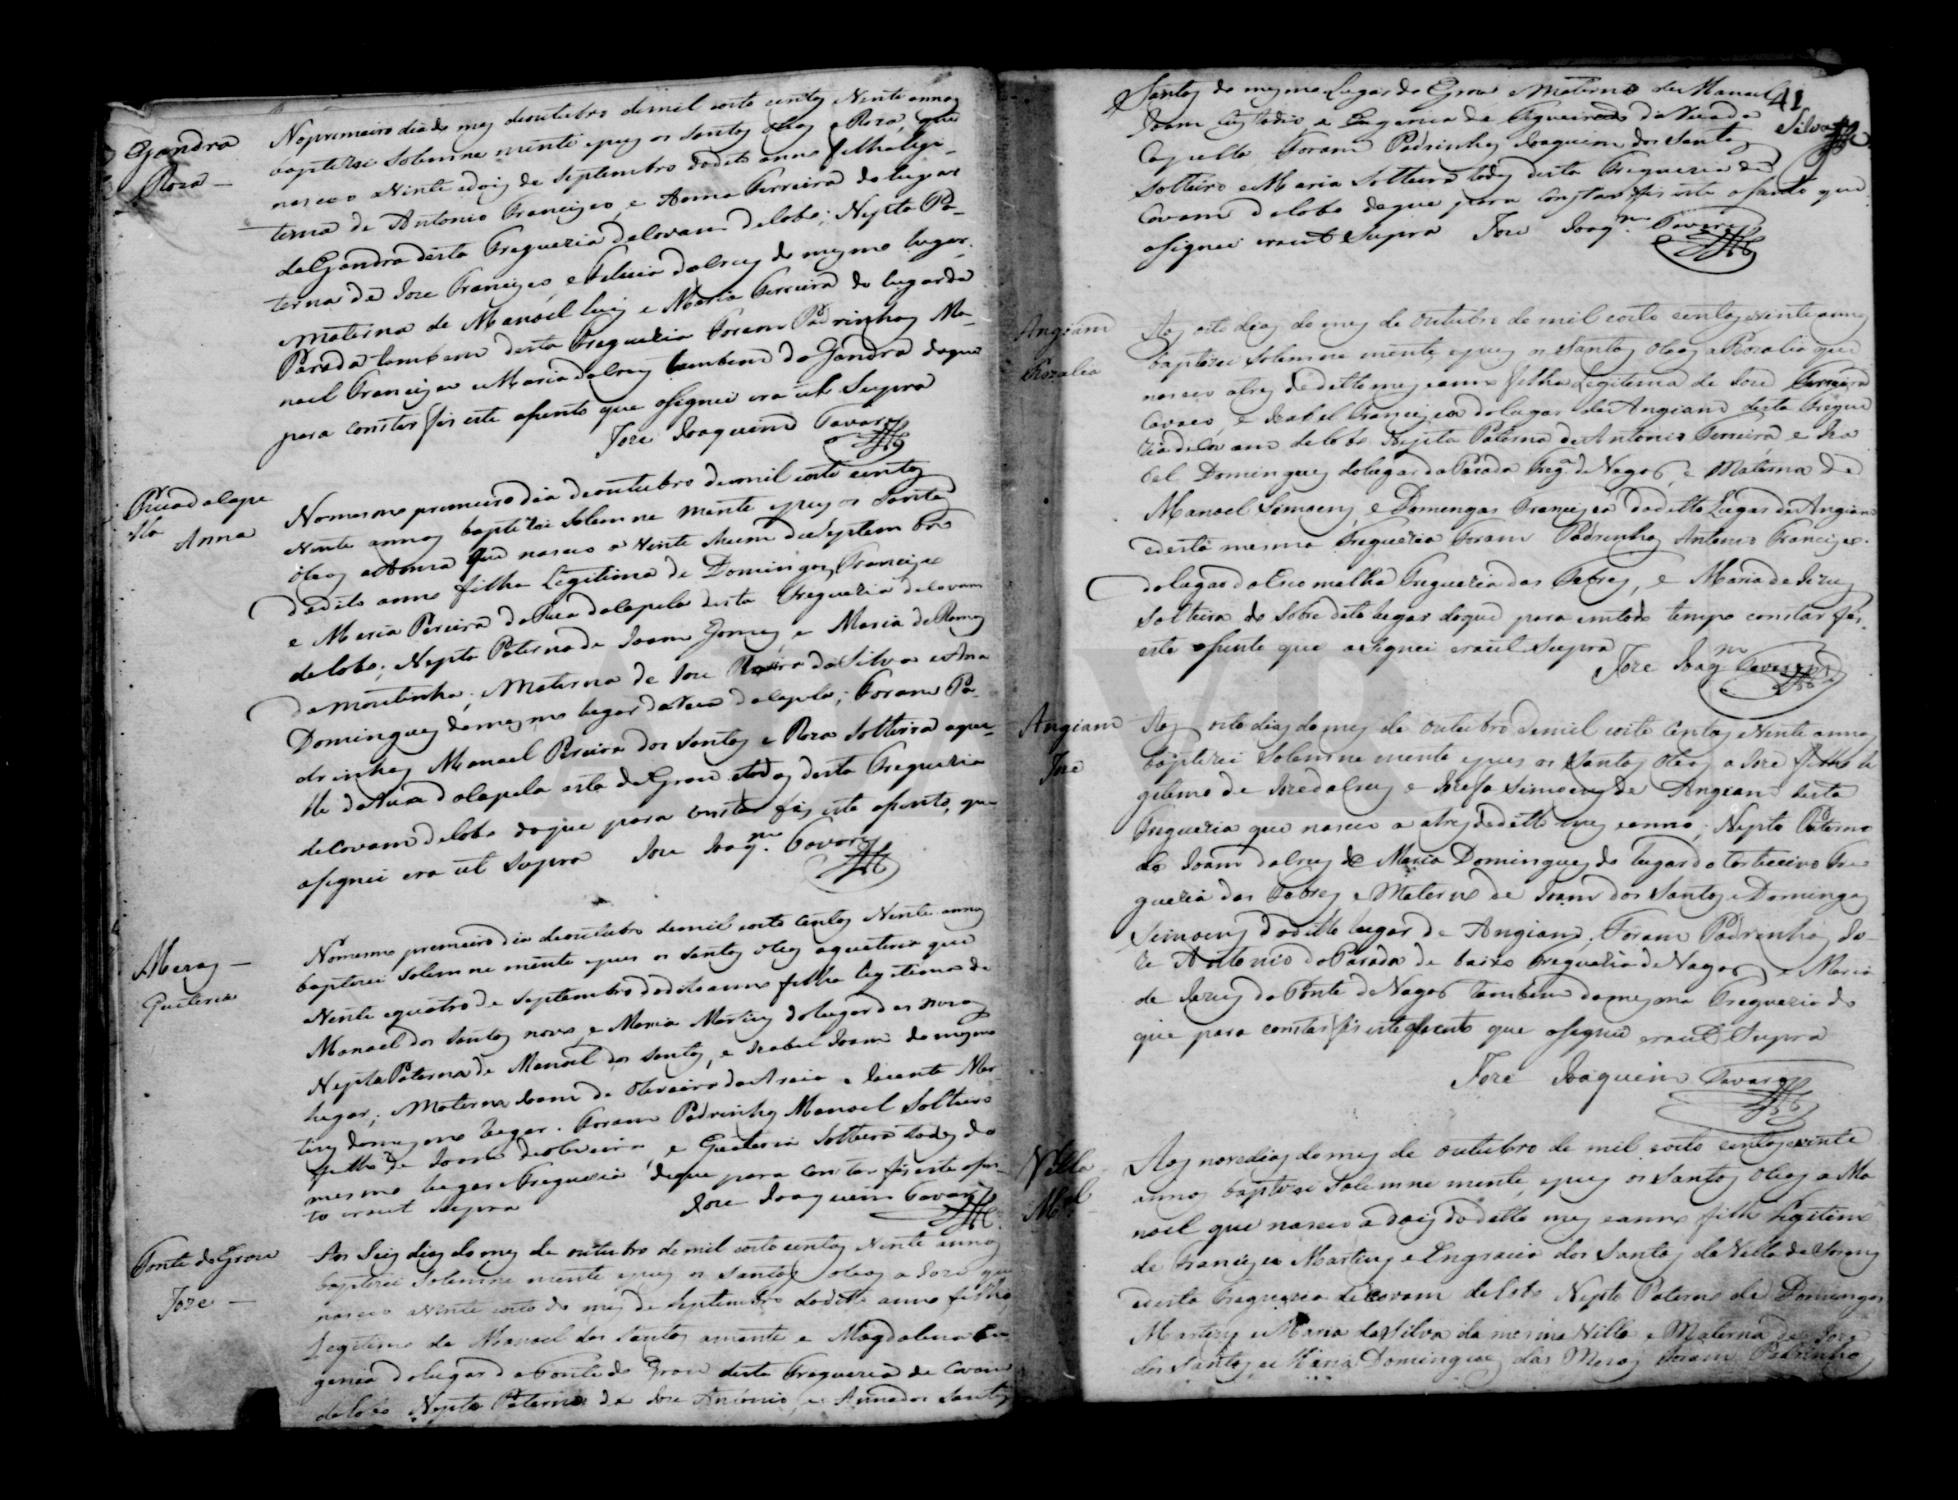 Gandra
Roza
No primeiro dia do mez de outubro de mil oito centos Vinte annos
baptizei solemne mente e puz os santos oleos a Roza, que
nasceo a Vinte e dois de Septembro do dito anno filha legi-
tema de Antonio Francisco, e Anna Ferreira do lugar
da Gandra desta Freguezia de Covam de lobo; Nepta Pa-
terna de Joze Francisco, e Felicia da Cruz do mesmo lugar,
e materna de Manoel Luiz e Maria Ferreira do lugar da
Parada tambem desta Freguezia Foram Padrinhos Ma-
noel Francisco e Maria da Cruz tambem da Gandra do que
para constar fis este asento que asignei era ut Supra
Joze Joaquim Tavares
Rua da lape
lla Anna
No mesmo primeiro dia de outubro de mil oito centos
Vinte annos baptizei solemne mente e puz os Santos
oleos a Anna que nasceo a Vinte hum de Septembro
do dito anno filha Legitima de Domingos Francisco
e Maria Pereira da Rua da lapela desta Freguezia de Covam
de lobo; Nepta Paterna de Joam Gomes, e Maria de Ramos
da moutinha; Materna de Joze da Silva e Anna
Domingues do mesmo lugar da Rua da lapela; Foram Pa-
drinhos Manoel Pereira dos Santos e Roza Solteira aque-
lle da Rua da lapela esta de Grou e todos desta Freguezia
de Covam de lobo do que para constar fis este asento, que
asignei era ut supra Joze Joaq.m Tavares
Mezas
Quiteria
No mesmo primeiro dia de outubro de mil oito centos Vinte annos
baptizei solemne mente e puz os santos oleos a quiteria que
Vinte e quatro de Septembro do dito anno filha legitima de
Manoel dos Santos novo, e Maria Martins do lugar das mezas
Nepta Paterna de Manoel dos Santos, e Izabel Joam do mesmo
lugar; Materna Joam de Oliveira da Areia e Vicente Mar-
tins do mesmo lugar. Foram Padrinhos Manoel Solteiro
filho de Joam de oliveira, e Quiteria Solteira todos do
mesmo lugar e Freguezia de que para constar fis este asen-
to era ut supra Joze Joaquim Tavares
Ponte de Grou
Joze
Aos Seis dias do mez de outubro de mil oito centos Vinte annos
baptizei Solemne mente e puz os santos oleos a Joze que
nasceo a Vinte oito do mez de Septembro do dito anno filho
Legitimo de Manoel dos Santos amante e Magdalena Eu
genia do lugar da Ponte de Grou desta Freguezia de Covam
de lobo Nepto Paterno de Joze Antonio, e Anna dos Santos
41
Silva
Santos do mesmo Lugar de Grou e Materno de Manoel
Joam Custodio e Eugenia de Figueiredo da Rua da
Capella Foram Padrinhos Joaquim dos Santos
Solteiro e Maria Solteira todos desta Freguezia de
Covam de lobo de que para constar fis este asento que
asignei era ut Supra Joze Joaq.m Tavares
Angiam
Rozalia
Aos oito dias do mez de outubro de mil oito centos Vinte annos
baptizei Solemne mente, e puz os Santos Oleos a Rozalia que
nasceo a tres do dito mez e anno filha Legitima de Joze Ferreira
Cavaco, e Izabel Francisca do lugar de Angiam desta Fregue
zia de Covam de lobo Nepta Paterna de Antonio Ferreira e Iza
bel Domingues do lugar da Parada Freg.a de Vagos, e Materna de
Manoel Simoens, e Domingas Francisca do dito Lugar de Angiam
e desta mesma Freguezia Foram Padrinhos Antonio Francisco
do lugar da Escomalha Freguezia das Febres, e Maria de Jezus
Solteira do sobre dito lugar do que para em todo tempo constar fis
este asento que asignei era ut Supra
Joze Joaq.m Tavares
Angiam
Joze
Aos oito dias do mez de outubro de mil oito centos Vinte annos
baptizei Solemne mente e puz os Santos oleos a Joze filho le
gitimo de Joze da Cruz e Josefa Simoens de Angiam desta
Freguezia que nasceo a tres do dito mez e anno; Nepto Paterno
de Joam da Cruz e de Maria Domingues do lugar do Fre
guezia das Febres e Materno de Joam dos Santos e Domingas
Simoens do dito lugar de Angiam. Foram Padrinhos Jo-
ze Antonio da Parada de baixo Freguezia de Vagos, e Maria
de Jezus da Ponte de Vagos tambem da mesma Freguezia do
que para constar fis este asento que asignei era ut Supra
Joze Joaquim Tavares
Villa
M.el
Aos nove dias do mez de outubro de mil oito centos e vinte
annos baptizei Solemne mente, e puz os Santos Oleos a Ma
noel que nasceo a dois do dito mez e anno filho Legitimo
de Francisco Martins e Engracia dos Santos da Villa de Soza
e desta Freguezia de Covam de lobo Nepto Paterno de Domingos
Martins e Maria da Silva da mesma Villa e Materna de Joze
dos Santos, e Maria Domingues das Mezas Foram Padrinhos